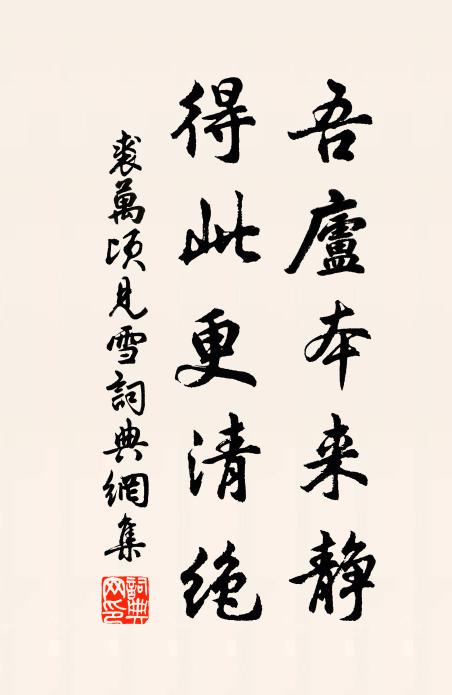 吾廬本来静
得此更清绝
裘萬頃見雪詞典網集
詞典
网印